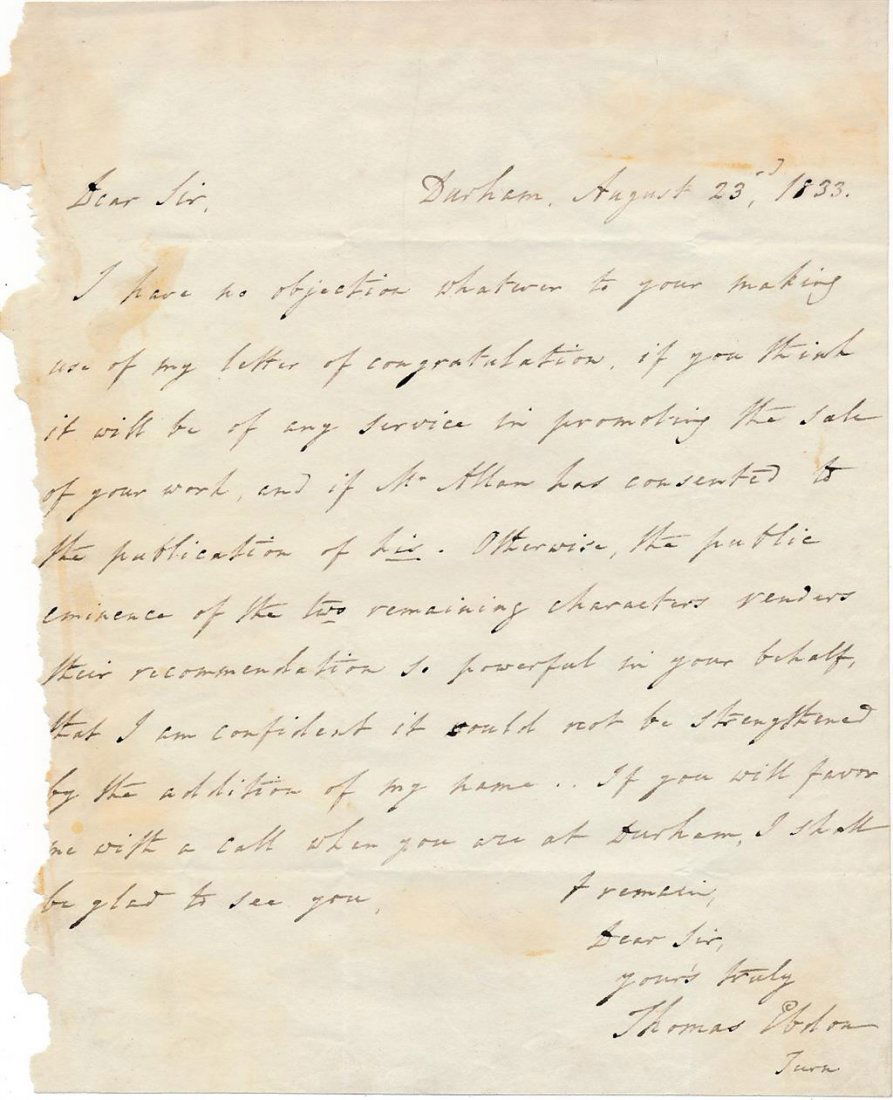 Dear Sir, Durham, August 23,rd 1833.
I have no objection whatever to your making
use of my letter of congratulation, if you think
it will be of any service in promoting the sale
of your work, and if Mr Allan has consented to
the publication of his. Otherwise, the public
eminence of the two remaining characters renders
their recommendation so powerful in your behalf,
that I am confident it could not be strengthened
by the addition of my name.. If you will favor
me with a call when you are at Durham, I shall
be glad to see you,
I remain,
Dear Sir,
your's truly
Thomas Ebdon
Turn